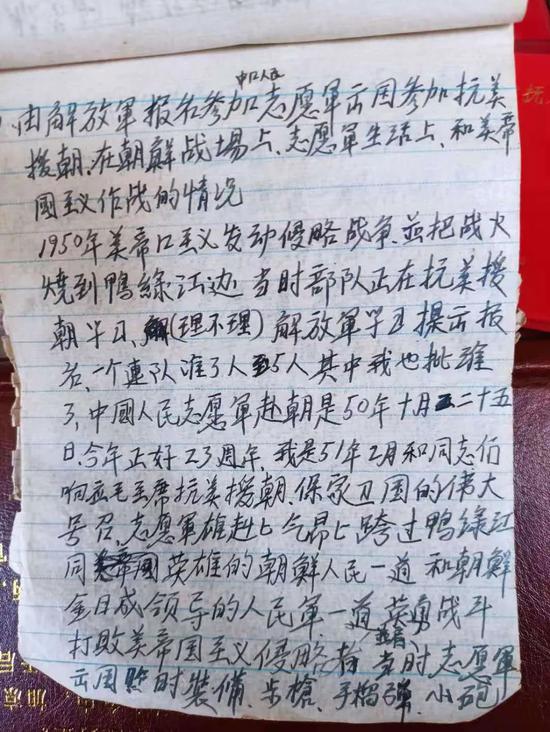 中口人民
由解放軍报名参加志愿軍出国参加抗美
援朝.在朝鮮战場上、志愿軍生活上、和美帝
國主义作战的情况
1950年美帝口主义发动侵略战争.並把战火
燒到鴨綠江边 当时部队正在抗美援
朝学习、(理不理)解放軍学习提出报
名、一个連队准了人5人其中我也批准
了,中國人民志愿軍赴朝是50年十月二十五
日.今年正好23週年,我是51年2月和同志们
响应毛主席抗美援朝.保家卫国的伟大
号召、志愿軍雄赳匕气昂匕跨过鴨綠江
同英雄的朝鮮人民一道 和朝鮮
金日成领导的人民軍一道 英勇战斗
打败美帝国主义侵略者 当时志愿軍
出国时装備.步槍、手榴弹.小砲
抗